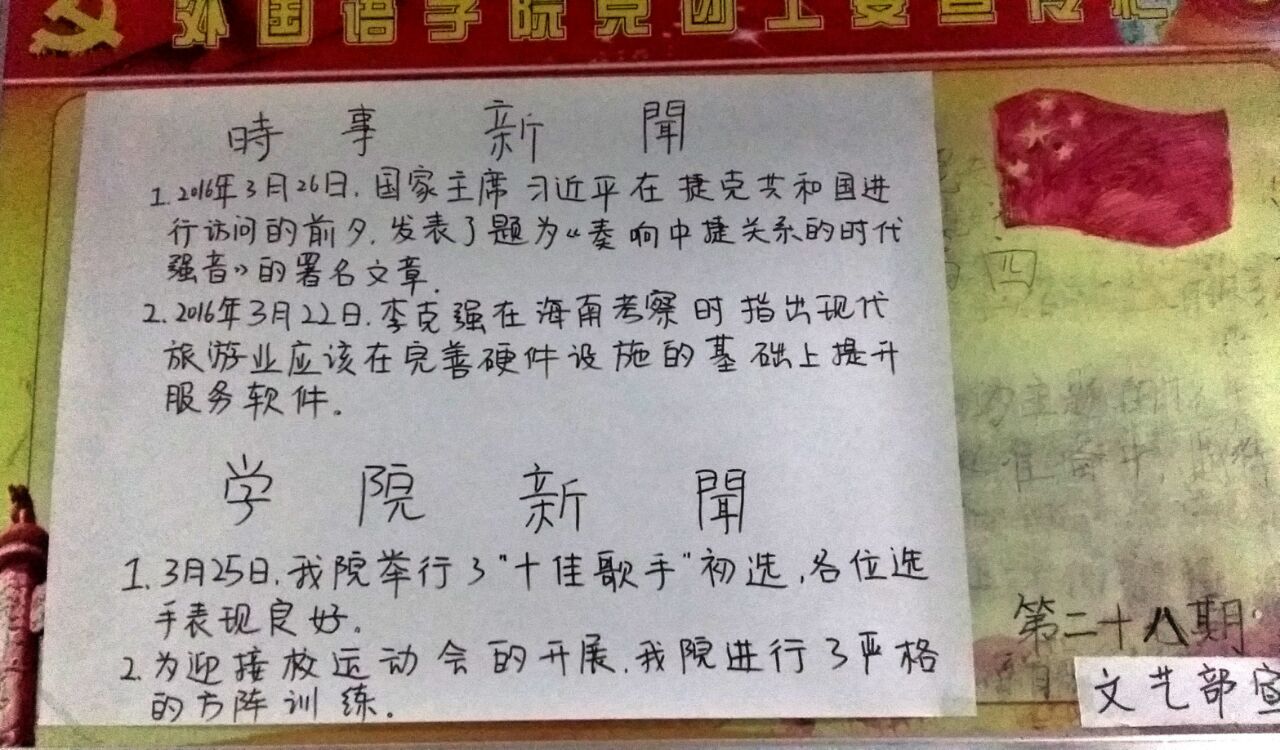 外国语学院党团工委宣传栏
時事新聞
1.2016年3月26日,国家主席习近平在捷克共和国进
行访问的前夕,发表了题为《奏响中捷关系的时代
强音》的署名文章.
2.2016年3月22日,李克强在海南考察时指出现代
旅游业应该在完善硬件设施的基础上提升
服务软件。
学院新聞
1.3月25日,我院举行了"十佳歌手"初选,各位选
手表现良好。
2.为迎接校运动会的开展,我院进行了严格
的方阵训练。
四
为主题
第二十八期
文艺部宣